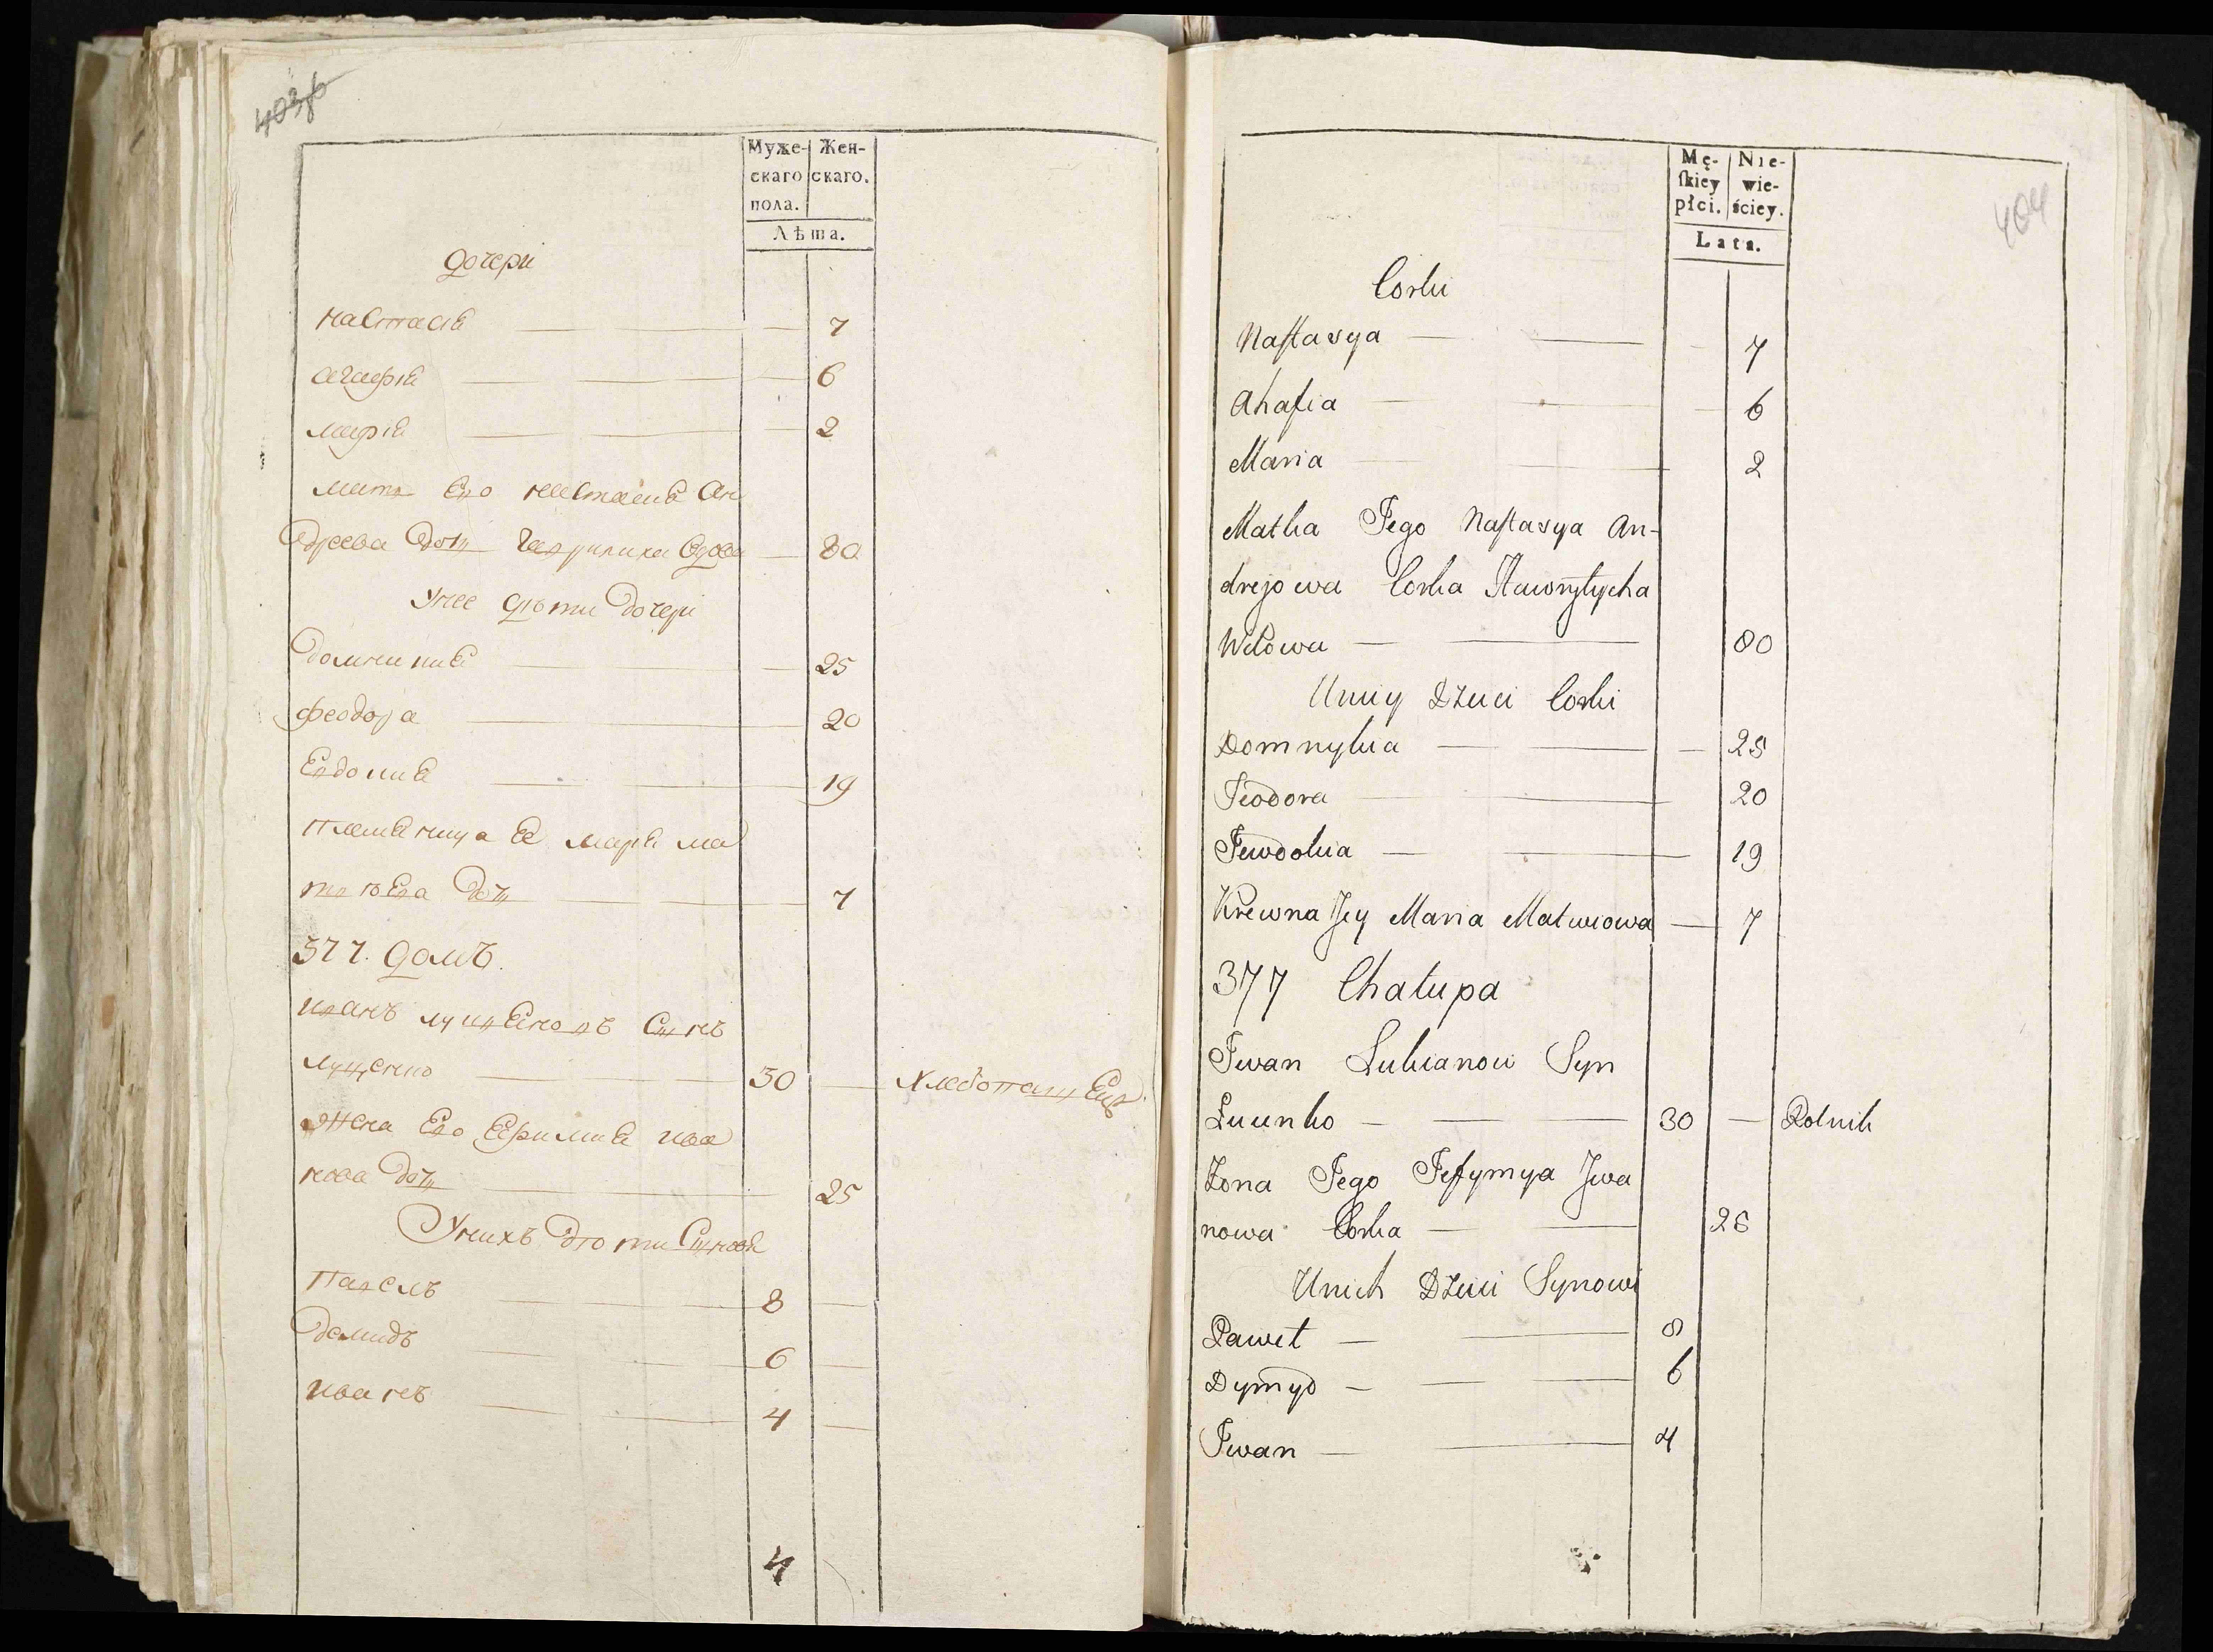 403об
Муже-
скаго
пола.
Жен-
скаго.
Лѣта.
дочери
Настасія 7
Агафія 6
Марія 2
мать Его Настасиа Ан
дреева дочь Гаврилиха вдова 80
У нее дѣти дочери
Домникия 25
Феодора 20
Евдокия 19
Племеница Ее Марія Ма
твѣева дочь 7
377. домъ.
Иванъ Лукяновъ Сынъ
Луценко 30 Хлебопашець
жена Его Ефимия Ива
нова дочь 25
У нихъ дѣти Сыновя
Павелъ 8
Демидъ 6
Иванъ 4
4
404
Mę-
ſkiey
płci.
Nie-
wie-
ściey.
Lata.
Corki
Naſtasya 7
Ahafia 6
Maria 2
Matka Jego Naſtasya An-
drejowa Corka Hawryłycha
Wdowa 80
U niey Dzieci Corki
Domnykia 25
Teodora 20
Jewdokia 19
Krewna Jey Maria Matwiowa 7
377 Chałupa
Iwan Lukianow Syn
Lucenko 30 Rolnik
Zona Jego Jefymya Iwa
nowa Corka 25
U nich Dzieci Synowi
Paweł 8
Dymyd 6
Iwan 4